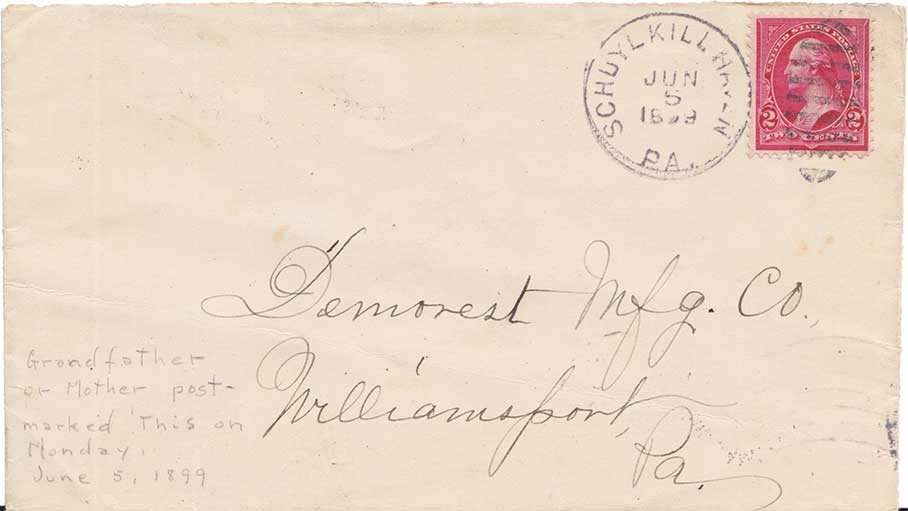 SCHUYLKILL HAVEN
JUN
5
1899
PA.
UNITED STATES POSTAGE
2 2
TWO CENTS
Demorest Mfg. Co.,
Williamsport,
Pa.
Grandfather
or Mother post-
marked This on
Monday,
June 5, 1899